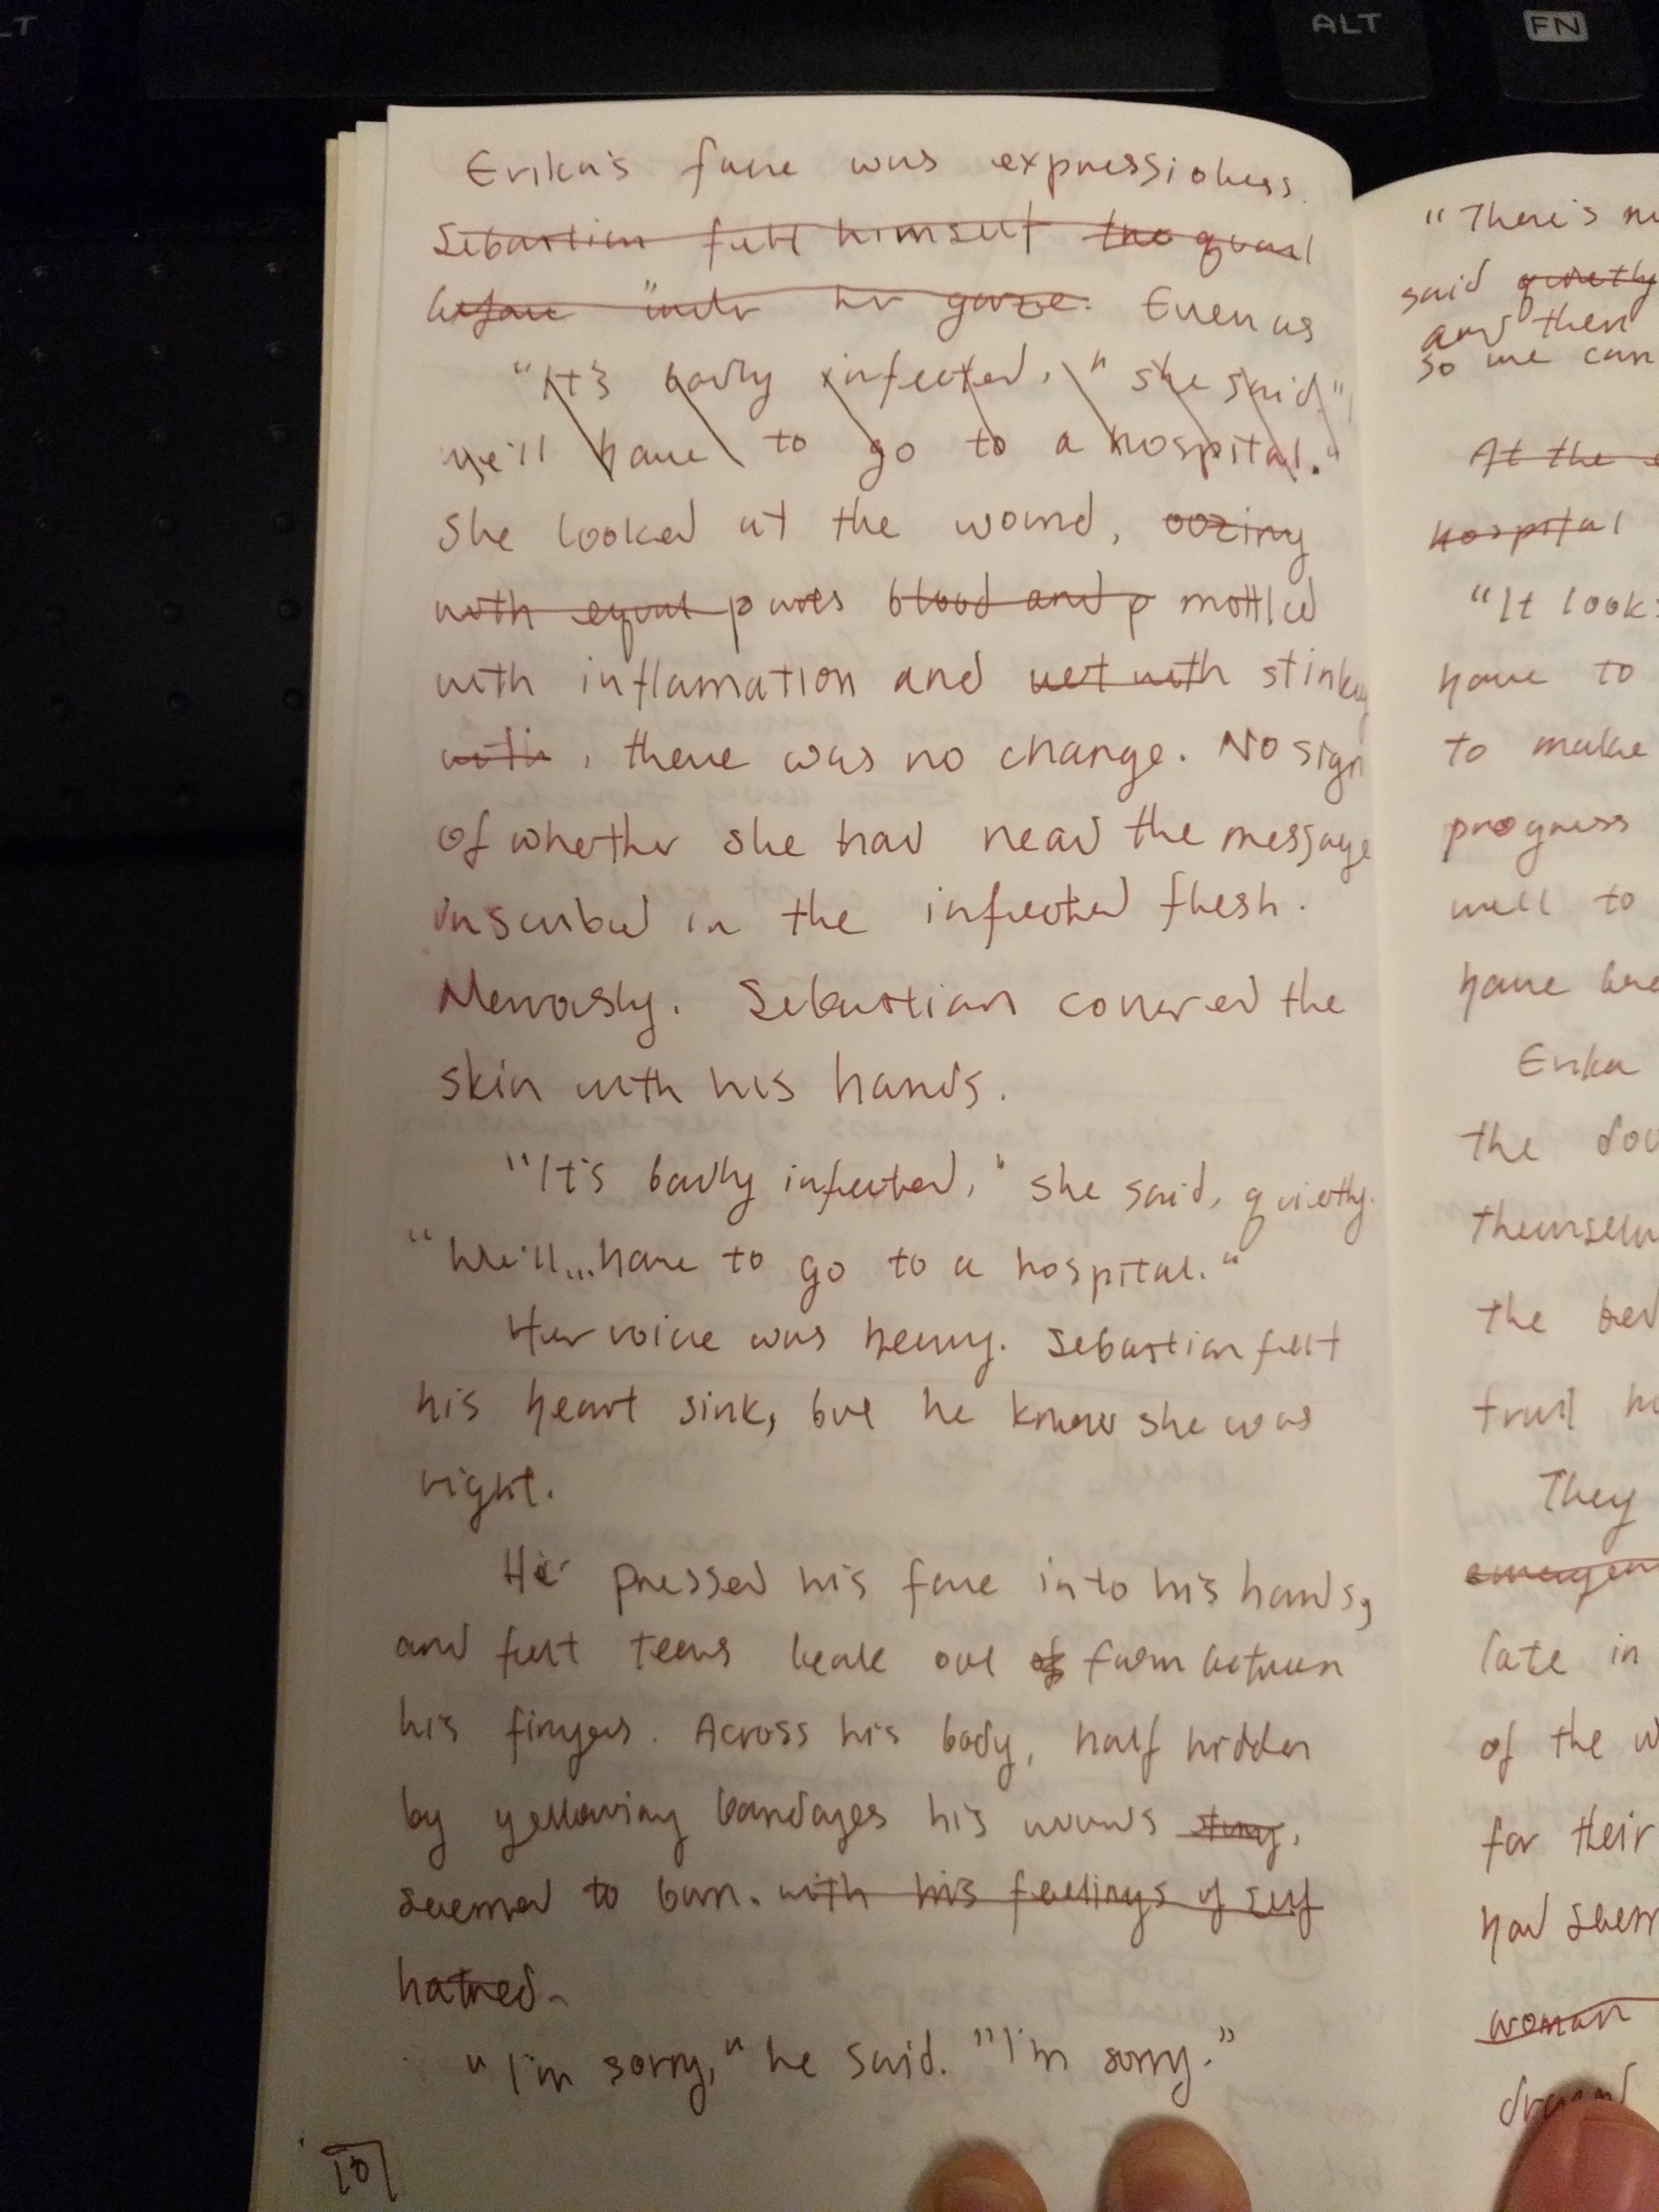 ALT
FN
Erika's face was expressionless.
Sebastian felt himself the quail
before under her gaze. Even as
"It's badly infected," she said"
we'll have to go to a hospital."
She looked at the wound, oozing
with equal parts blood and p mottled
with inflamation and wet with stinky
with, there was no change. No sign
of whether she had read the message
inscribed in the infected flesh.
Nervously. Sebastian covered the
skin with his hands.
"It's badly infected," she said, quietly.
"We'll...have to go to a hospital."
Her voice was heavy. Sebastian felt
his heart sink, but he knew she was
right.
He pressed his face into his hands,
and felt tears leak out of from between
his fingers. Across his body, half hidden
by yellowing bandages his wounds stung,
seemed to burn. with his feelings of self
hatred.
"I'm sorry," he said. "I'm sorry."
10
"There's
said quietly
and then
so we can
At the
hospital
"It looks
have to
to make
progress
well to
have
Erika
the
themselves
the bed
trail
They
late in
of the
for their
had seen
woman